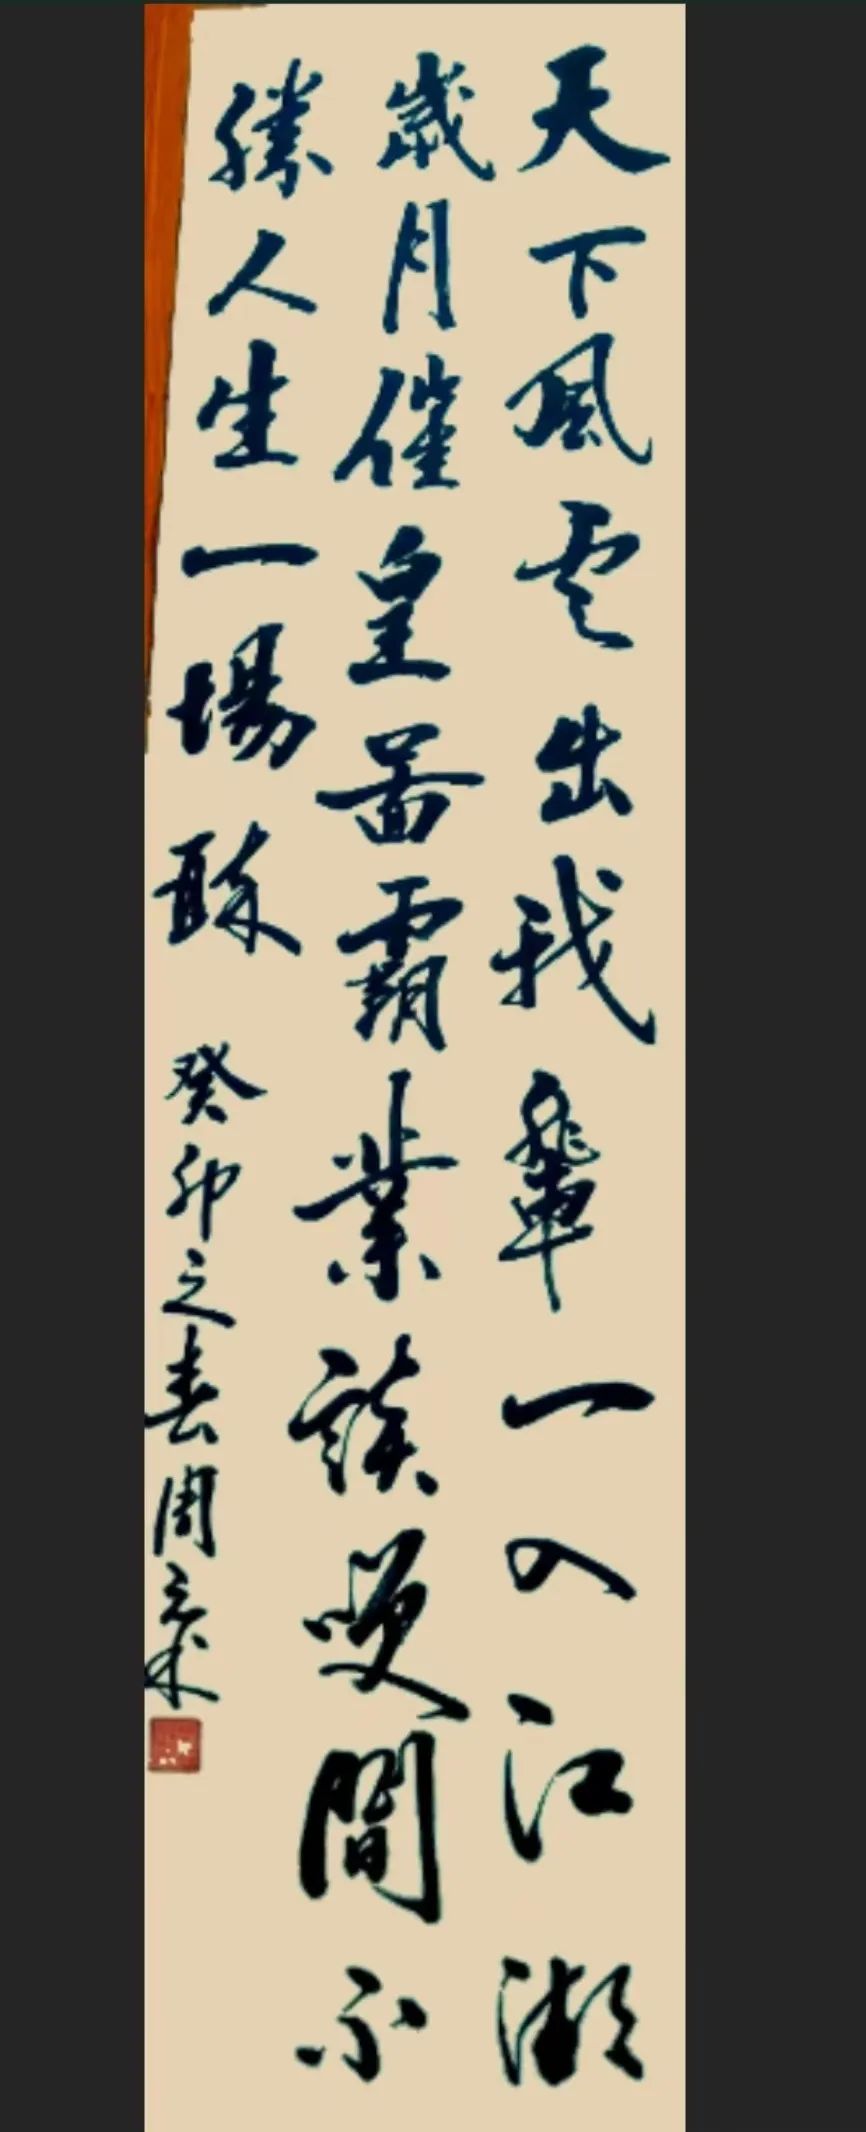 天下風雲出我輩一入江湖
歲月催皇啚霸業談笑間不
勝人生一場醉
癸卯之春周